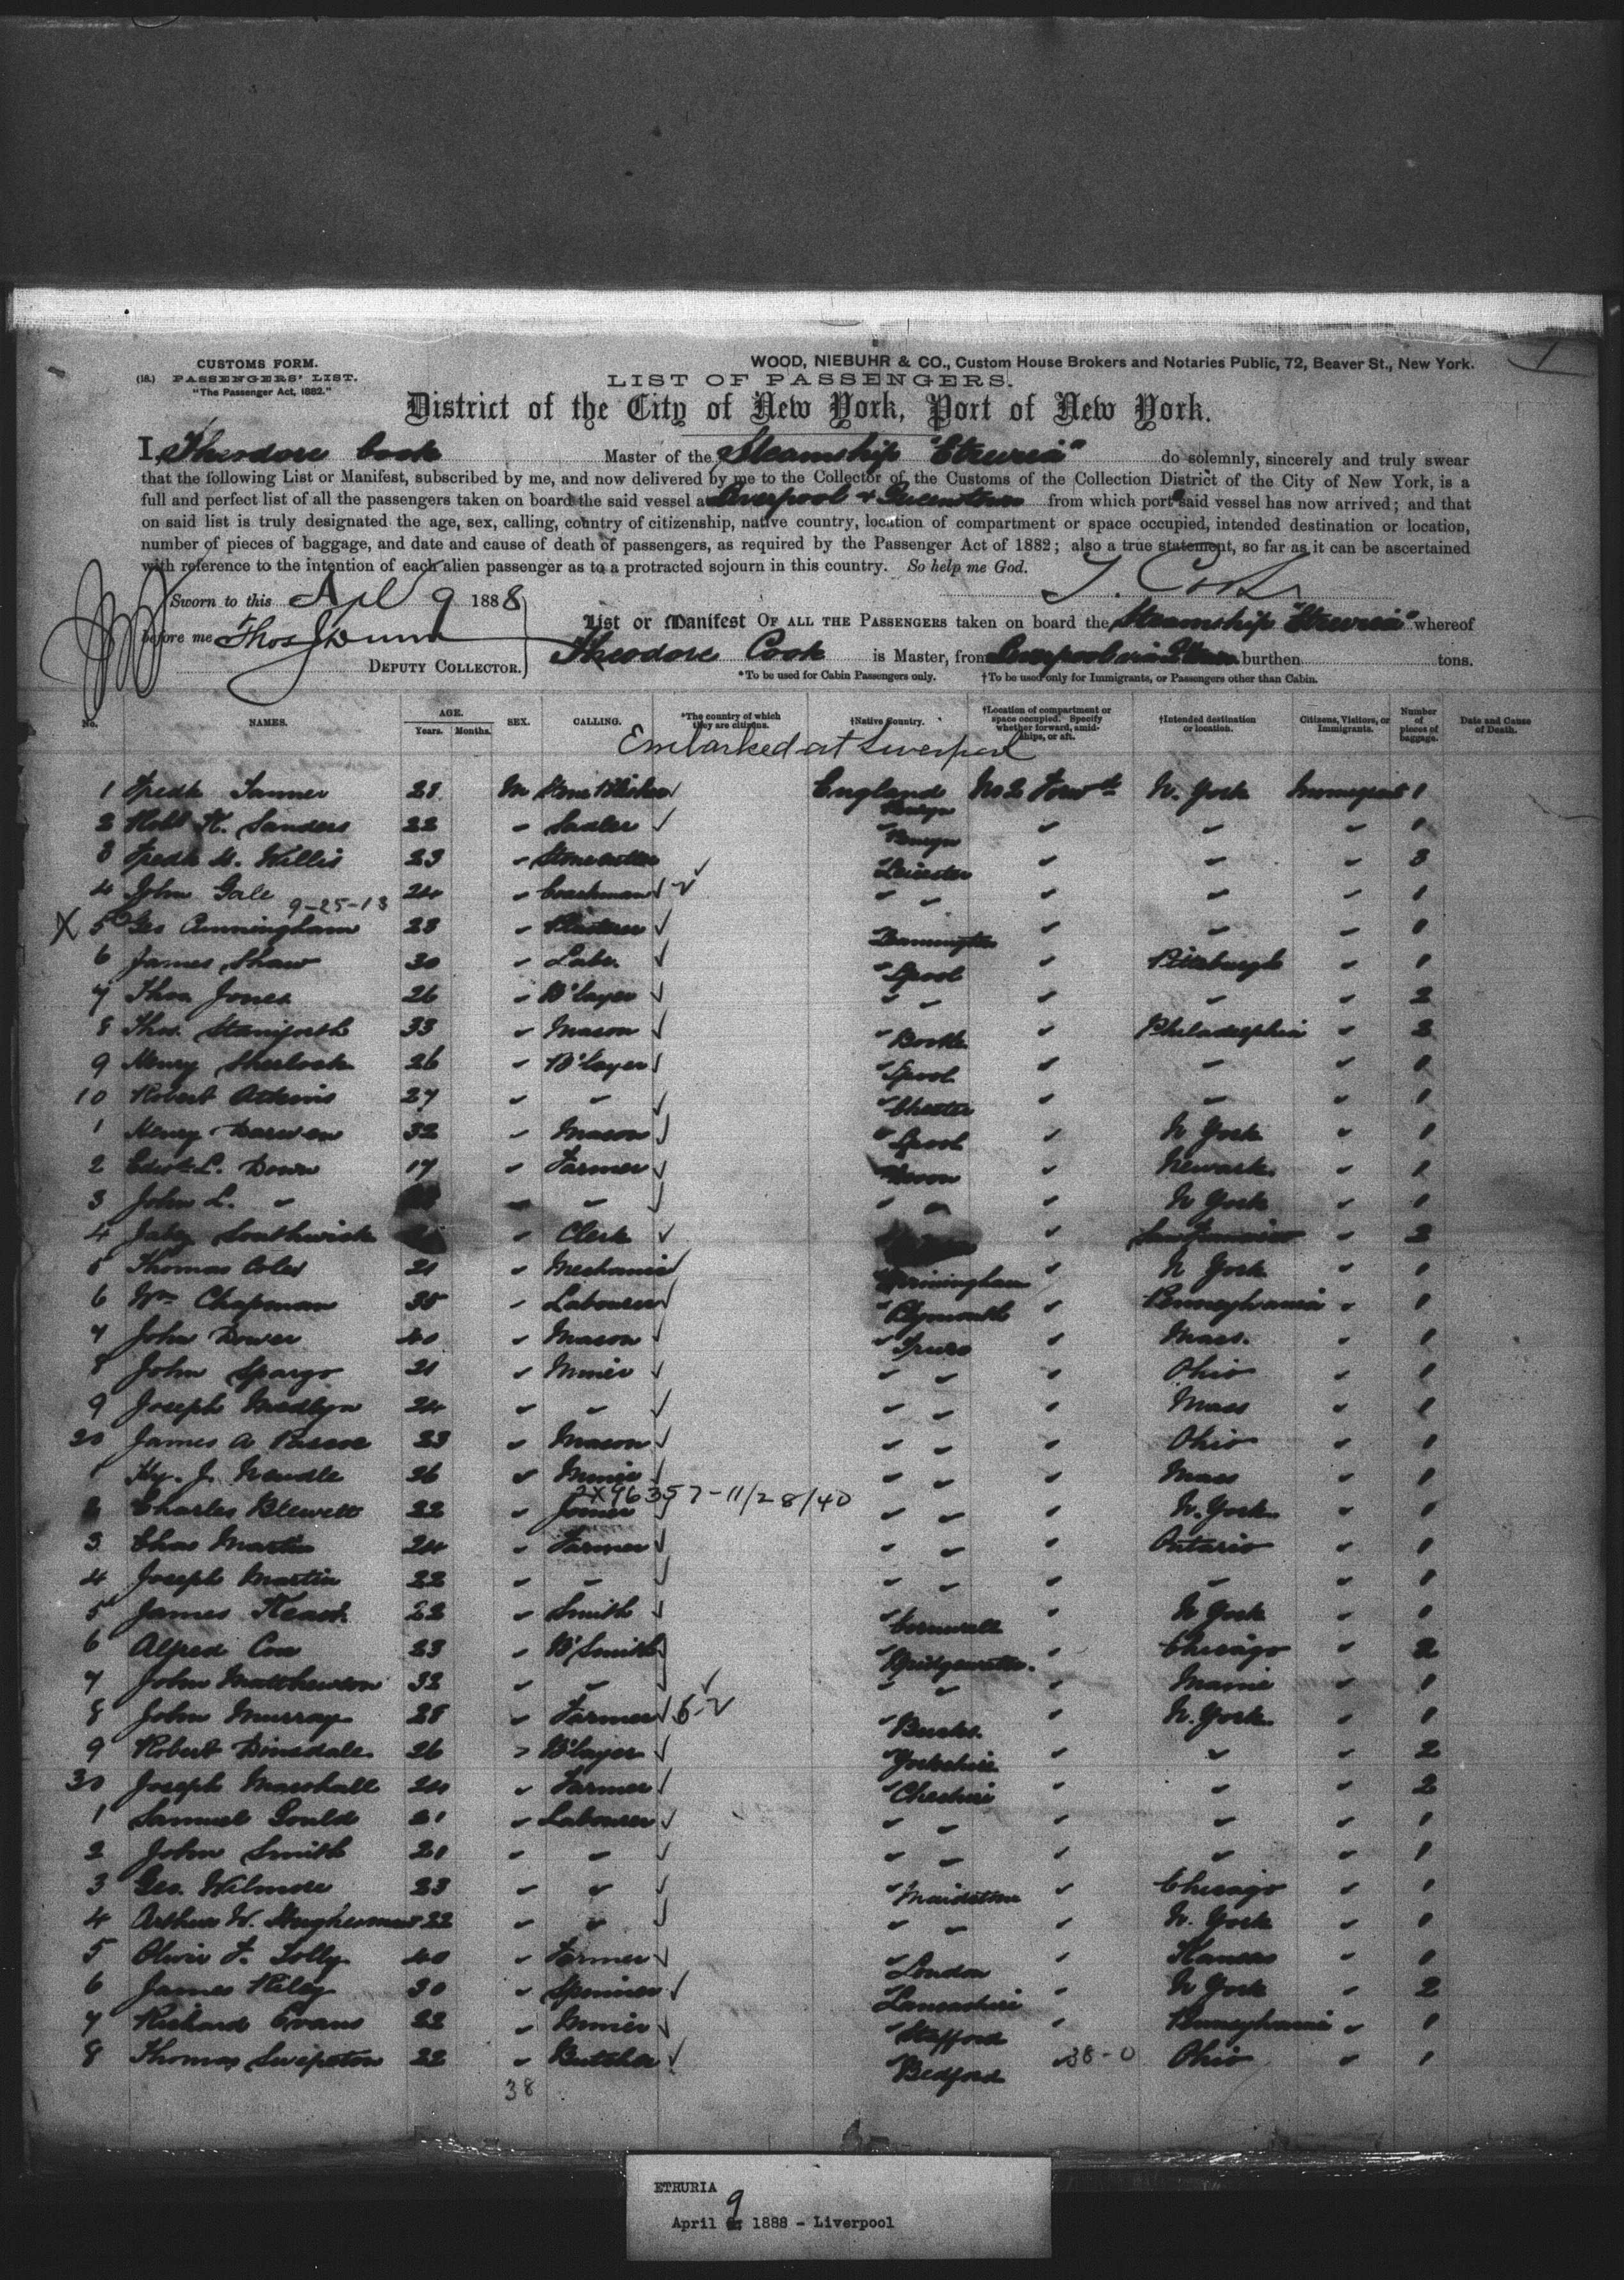 CUSTOMS FORM.
(18.) PASSENGERS' LIST.
"The Passenger Act, 1882."
WOOD, NIEBUHR & CO., Custom House Brokers and Notaries Public, 72, Beaver St., New York.
1
LIST OF PASSENGERS.
District of the City of New York, Port of New York.
I, Theodore Cook Master of the Steamship "Etruria" do solemnly, sincerely and truly swear
that the following List or Manifest, subscribed by me, and now delivered by me to the Collector of the Customs of the Collection District of the City of New York, is a
full and perfect list of all the passengers taken on board the said vessel at Liverpool & Queenstown from which port said vessel has now arrived; and that
on said list is truly designated the age, sex, calling, country of citizenship, native country, location of compartment or space occupied, intended destination or location,
number of pieces of baggage, and date and cause of death of passengers, as required by the Passenger Act of 1882; also a true statement, so far as it can be ascertained
with reference to the intention of each alien passenger as to a protracted sojourn in this country. So help me God.
T. Cook
Sworn to this Apl 9 1888
before me Thos J Dunn
DEPUTY COLLECTOR.
List or Manifest OF ALL THE PASSENGERS taken on board the Steamship "Etruria" whereof
Theodore Cook is Master, from Liverpool via burthen tons.
*To be used for Cabin Passengers only. †To be used only for Immigrants, or Passengers other than Cabin.
No. NAMES. AGE. Years. Months. SEX. CALLING. *The country of which they are citizens. †Native Country. †Location of compartment or space occupied. Specify whether forward, amidships, or aft. †Intended destination or location. Citizens, Visitors, or Immigrants. Number of pieces of baggage. Date and Cause of Death.
Embarked at Liverpool
1 Fredk Tanner 28 M England No 2 Forwd N. York Immigrant 1
2 Robt H. Sanders 22 " Sadler ✓ " " " " 1
3 Fredk M. Willis 23 " Stonecutter " Leicester " " " 3
4 John Gale 24 " Coachman ✓ " " " " " 1
9-25-13
X 5 Geo Cunningham 23 " Plasterer ✓ " Leamington " " " 1
6 James Shaw 30 " Labr. ✓ " Lpool " Pittsburgh " 1
7 Thos Jones 26 " B'layer ✓ " " " " " 2
8 Thos. Staniforth 33 " Mason ✓ " Bootle " Philadelphia " 2
9 Henry Sherlock 26 " B'layer ✓ " Lpool " " " 1
10 Robert Atkins 27 " " ✓ " Chester " " " 1
1 Henry Darwen 32 " Mason ✓ " Lpool " N York " 1
2 L. Down 17 " Farmer ✓ " Devon " Newark " 1
3 John L. " " " ✓ " " " N York " 1
4 Jabez Southwick " Clerk ✓ " San Francisco " 2
5 Thomas Coles 21 " Mechanic ✓ " Birmingham " N York " 1
6 Wm Chapman 35 " Labourer ✓ " Plymouth " Pennsylvania " 1
7 John Dower 40 " Mason ✓ " Truro " Mass. " 1
8 John Spargo 21 " Miner ✓ " " " Ohio " 1
9 Joseph Medlyn 24 " " ✓ " " " Mass " 1
20 James A Pascoe 23 " Mason ✓ " " " Ohio " 1
1 Hy. J. Neudle 26 " Miner ✓ " " " Mass " 1
2X96357-11/28/40
2 Charles Blewett 22 " Joiner ✓ " " " N. York " 1
3 Chas Martin 24 " Farmer ✓ " " " Ontario " 1
4 Joseph Martin 22 " " ✓ " " " " " 1
5 James Keast 22 " Smith ✓ " Cornwall " N York " 1
6 Alfred Cox 23 " B'Smith ✓ " Bridgewater. " Chicago " 2
7 John Matthewson 32 " " ✓ " " " Maine " 1
8 John Murray 28 " Farmer ✓ " Bucks. " N. York " 1
9 Robert Dinsdale 26 " B'layer ✓ " Yorkshire " " " 2
30 Joseph Marshall 24 " Farmer ✓ " Cheshire " " " 2
1 Samuel Gould 21 " Labourer ✓ " " " " " 1
2 John Smith 20 " " ✓ " " " " " 1
3 Geo. Wilmore 23 " " ✓ " Maidstone " Chicago " 1
4 Arthur W. 22 " " ✓ " " " N. York " 1
5 Olivir F. Solly 40 " Farmer ✓ " London " Kansas " 1
6 James Riley 30 " Spinner ✓ " Lancashire " N York " 2
7 Richard Evans 22 " Miner ✓ " Stafford " Pennsylvania " 1
8 Thomas Swepston 22 " Butcher ✓ " Bedford " 38-0 Ohio " 1
38
ETRURIA
9
April 1888 - Liverpool